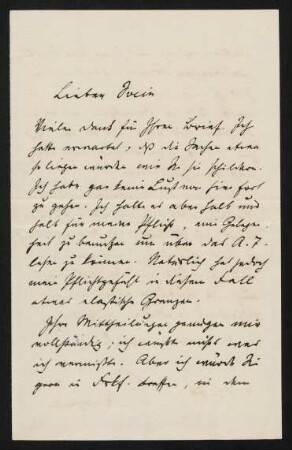 Lieber Socin
Vielen Dank für Ihren Brief. Ich
hatte erwartet, daß die Sachen etwa
so liegen würden wie Sie sie schildern.
Ich habe gar keine Lust von hier fort
zu gehen. Ich halte es aber halb und
halb für meine Pflicht, eine Gelegen-
heit zu benutzen um über das A. T.
lesen zu können. Natürlich hat jedoch
mein Pflichtgefühl in diesem Fall
etwas elastische Grenzen.
Ihre Mittheilungen genügen mir
vollständig; ich wüßte nicht was
ich vermißte. Aber ich würde Sie
gern in treffen, in dem